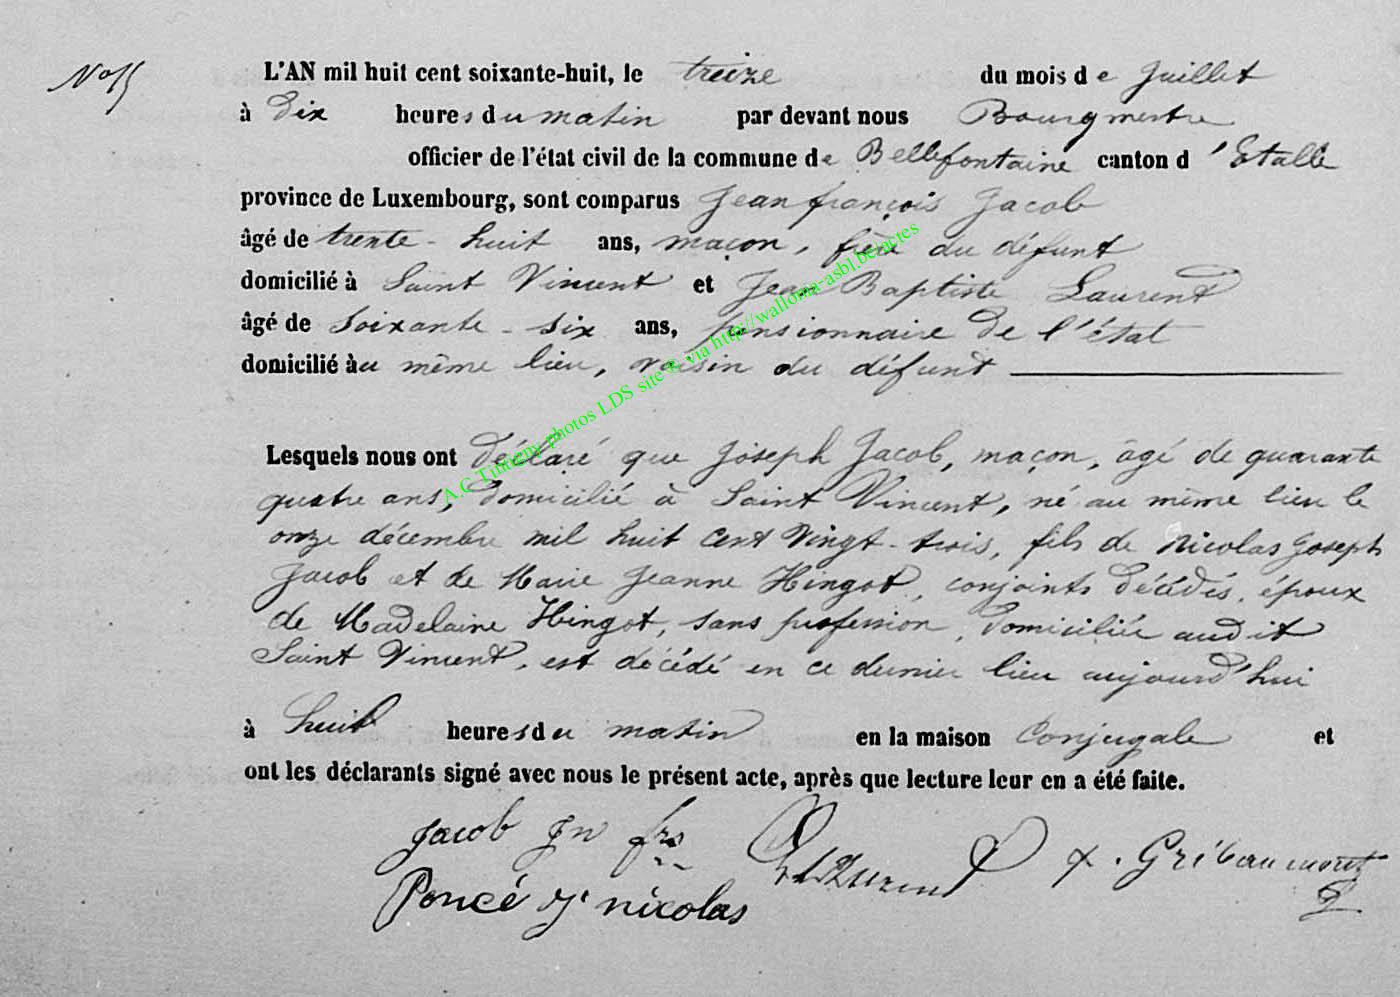 No 15
L'AN mil huit cent soixante-huit, le treize du mois de Juillet
à dix heures du matin par devant nous Bourgmestre
officier de l'état civil de la commune de Bellefontaine canton d'Etalle
province de Luxembourg, sont comparus Jean françois Jacob
âgé de trente-huit ans, maçon, frère du défunt
domicilié à Saint Vincent et Jean Baptiste Laurent
âgé de soixante-six ans, pensionnaire de l'état
domicilié àu même lieu, voisin du défunt
Lesquels nous ont déclaré que Joseph Jacob, maçon, âgé de quarante
quatre ans, domicilié à Saint Vincent, né au même lieu le
onze décembre mil huit cent vingt-trois, fils de Nicolas Joseph
Jacob et de Marie Jeanne Hingot, conjoints décédés, époux
de Madelaine Hingot, sans profession, domiciliée audit
Saint Vincent, est décédé en ce dernier lieu aujourd'hui
à huit heures du matin en la maison Conjugale et
ont les déclarants signé avec nous le présent acte, après que lecture leur en a été faite.
Jacob Jn frs
Poncé Jn nicolas
A.G Tintigny photos LDS site & via http://wallonia-asbl.be/actes